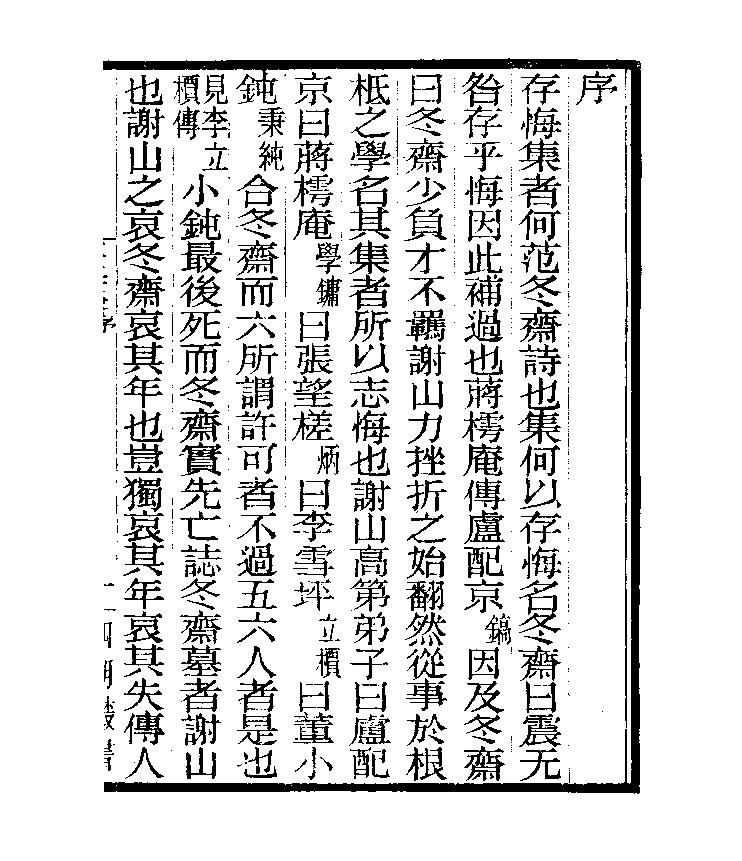 序
存悔集者何范冬齋詩也集何以存悔名冬齋曰震无
咎存乎悔因此補過也蔣樗庵傳盧配京鎬因及冬齋
曰冬齋少負才不羈謝山力挫折之始翻然從事於根
柢之學名其集者所以志悔也謝山高第弟子曰盧配
京曰蔣樗庵學鏞曰張望槎炳曰李雪坪立櫝曰董小
鈍秉純合冬齋而六所謂許可者不過五六人者是也
見李立櫝傳小鈍最後死而冬齋實先亡誌冬齋墓者謝山
也謝山之哀冬齋哀其年也豈獨哀其年哀其失傳人